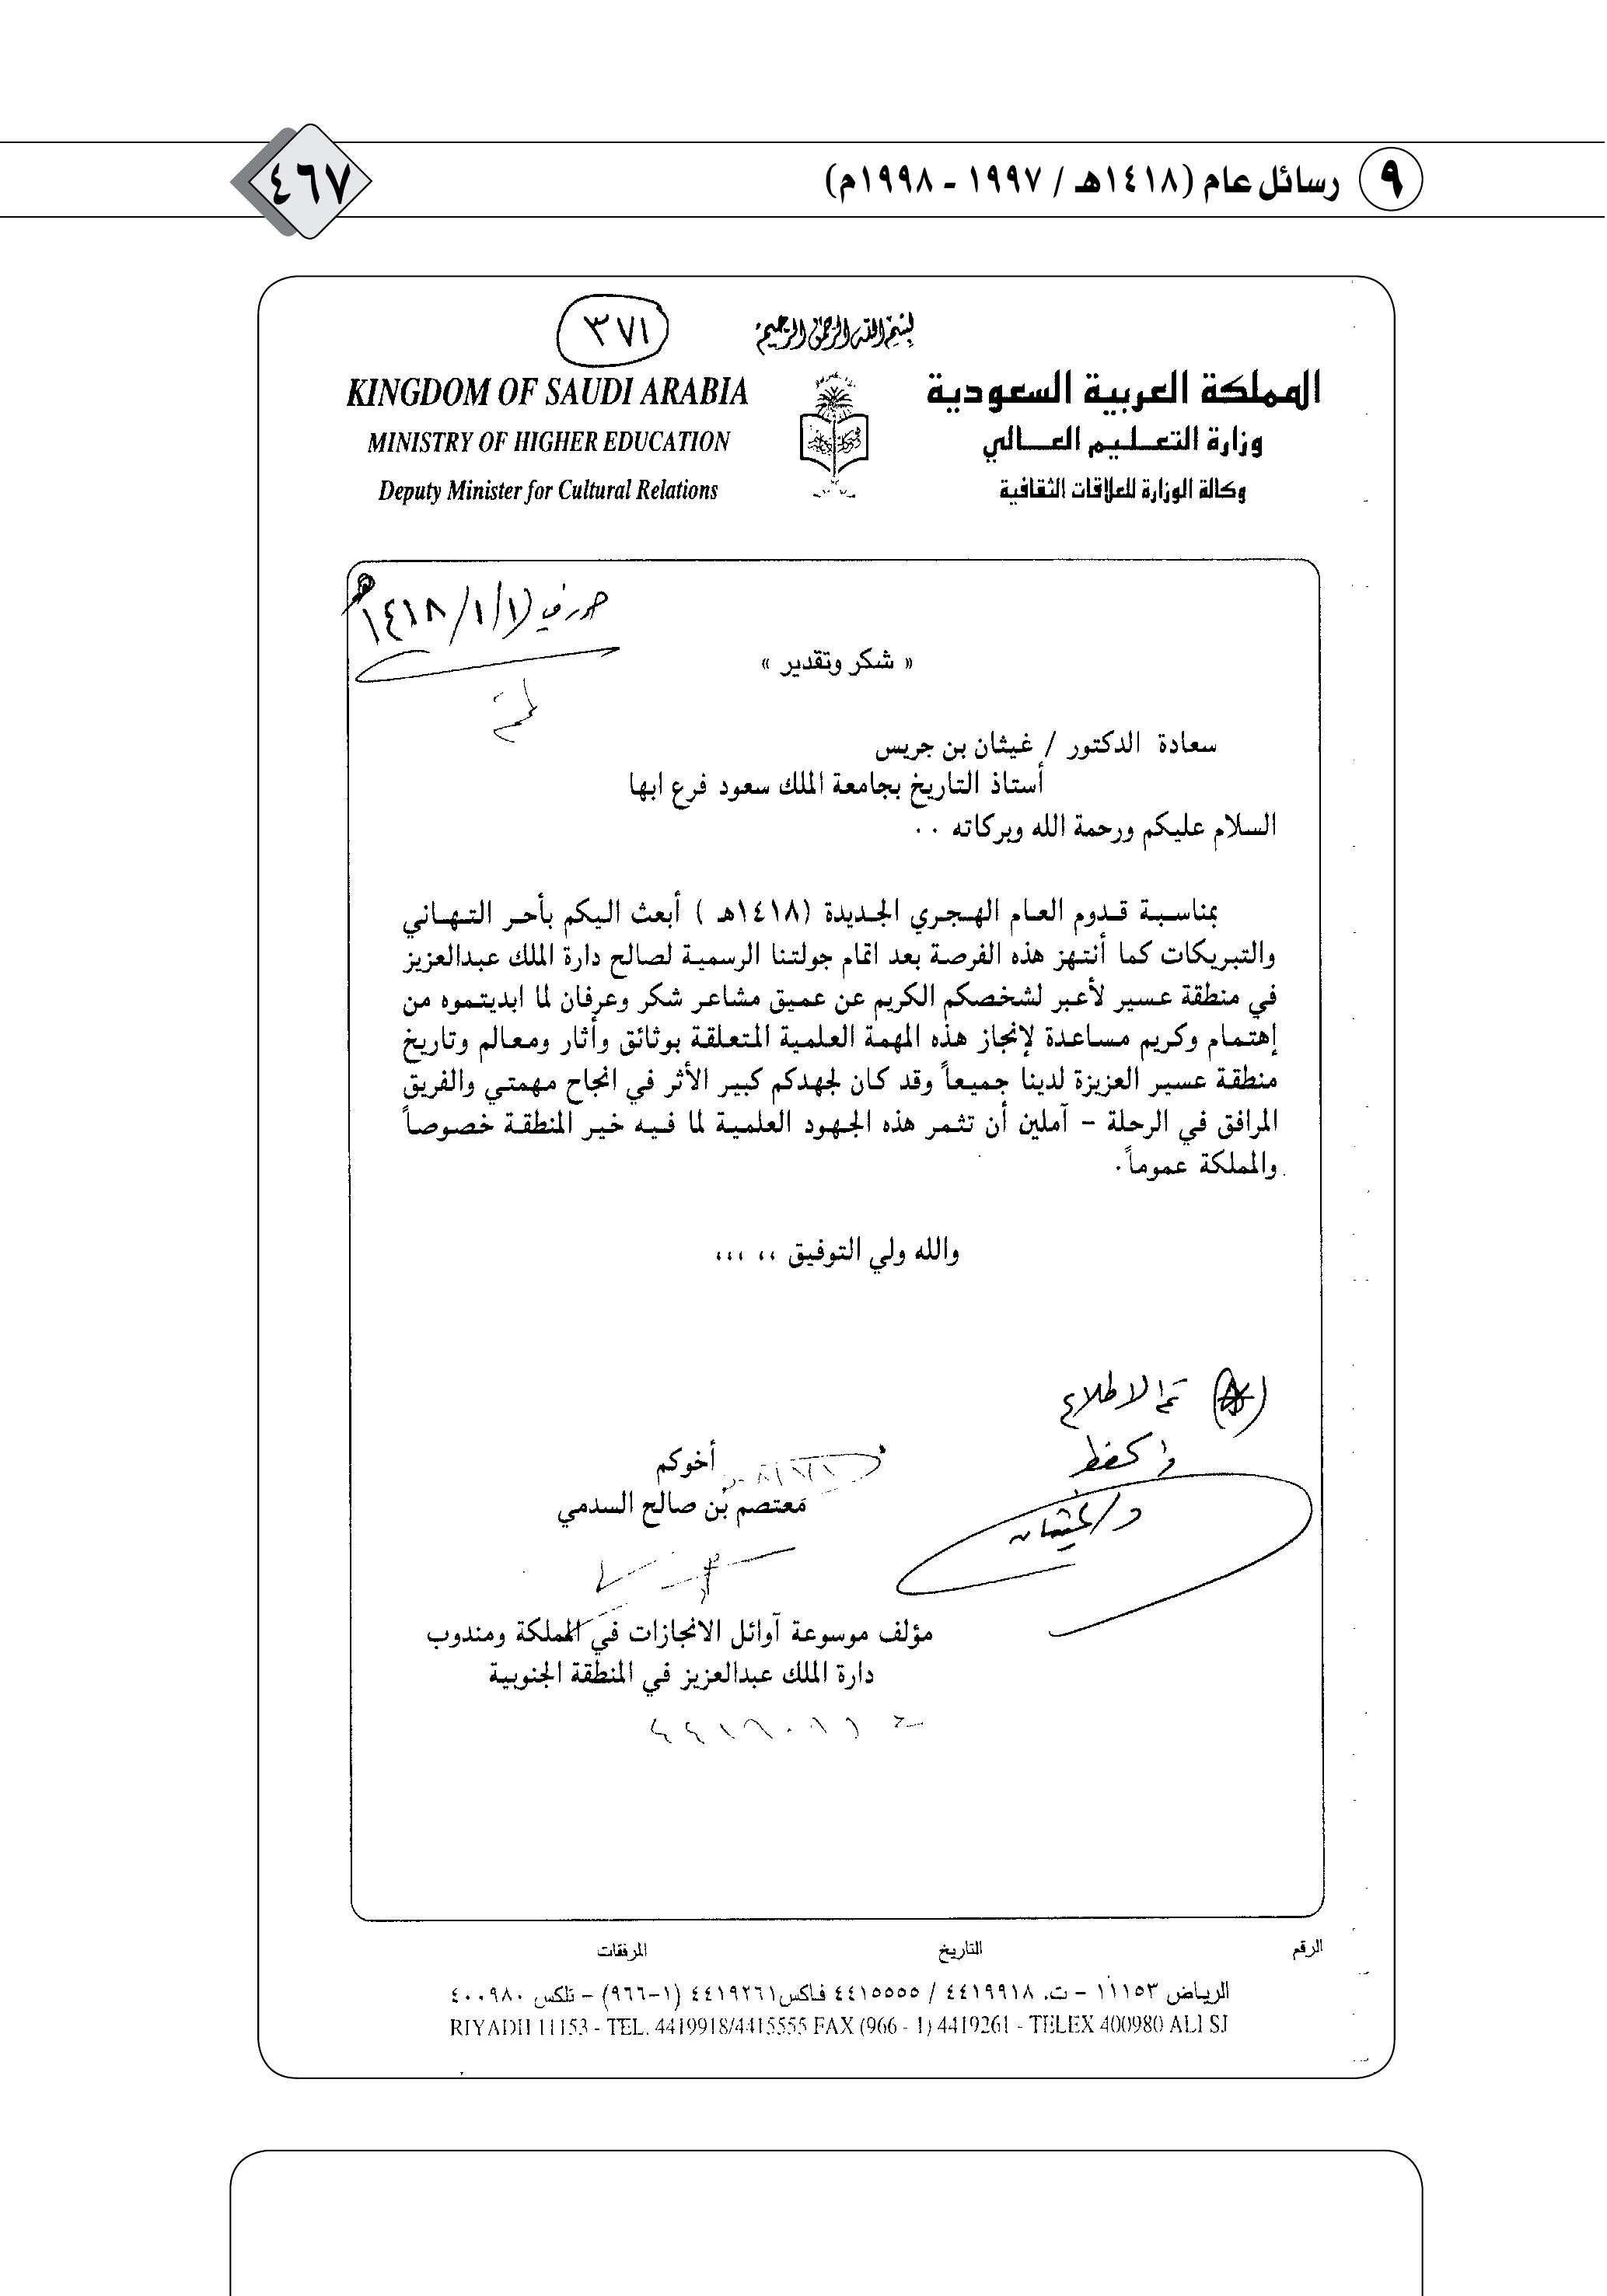 ٩ رسائل عام (١٤١٨هـ / ١٩٩٧ - ١٩٩٨م)
٤٦٧
٣٧١
بسم الله الرحمن الرحيم
المملكة العربية السعودية
وزارة التعليم العالي
وكالة الوزارة للعلاقات الثقافية
KINGDOM OF SAUDI ARABIA
MINISTRY OF HIGHER EDUCATION
Deputy Minister for Cultural Relations
حرر في ١/١/١٤١٨هـ
« شكر وتقدير »
سعادة الدكتور / غيثان بن جريس
أستاذ التاريخ بجامعة الملك سعود فرع ابها
السلام عليكم ورحمة الله وبركاته ..
بمناسبة قدوم العام الهجري الجديدة (١٤١٨هـ ) أبعث اليكم بأحر التهاني
والتبريكات كما أنتهز هذه الفرصة بعد اتمام جولتنا الرسمية لصالح دارة الملك عبدالعزيز
في منطقة عسير لأعبر لشخصكم الكريم عن عميق مشاعر شكر وعرفان لما ابديتموه من
إهتمام وكريم مساعدة لإنجاز هذه المهمة العلمية المتعلقة بوثائق وأثار ومعالم وتاريخ
منطقة عسير العزيزة لدينا جميعاً وقد كان لجهدكم كبير الأثر في انجاح مهمتي والفريق
المرافق في الرحلة - آملين أن تثمر هذه الجهود العلمية لما فيه خير المنطقة خصوصاً
والمملكة عموماً.
والله ولي التوفيق ،، ،،،
تم الاطلاع
والحفظ
د/ غيثان
أخوكم
معتصم بن صالح السدمي
مؤلف موسوعة آوائل الانجازات في المملكة ومندوب
دارة الملك عبدالعزيز في المنطقة الجنوبية
الرقم التاريخ المرفقات
الرياض ١١١٥٣ - ت. ٤٤١٩٩١٨ / ٤٤١٥٥٥٥ فاكس ٤٤١٩٢٦١ (١-٩٦٦) - تلكس ٤٠٠٩٨٠
RIYADH 11153 - TEL. 4419918/4415555 FAX (966 - 1) 4419261 - TELEX 400980 ALI SJ